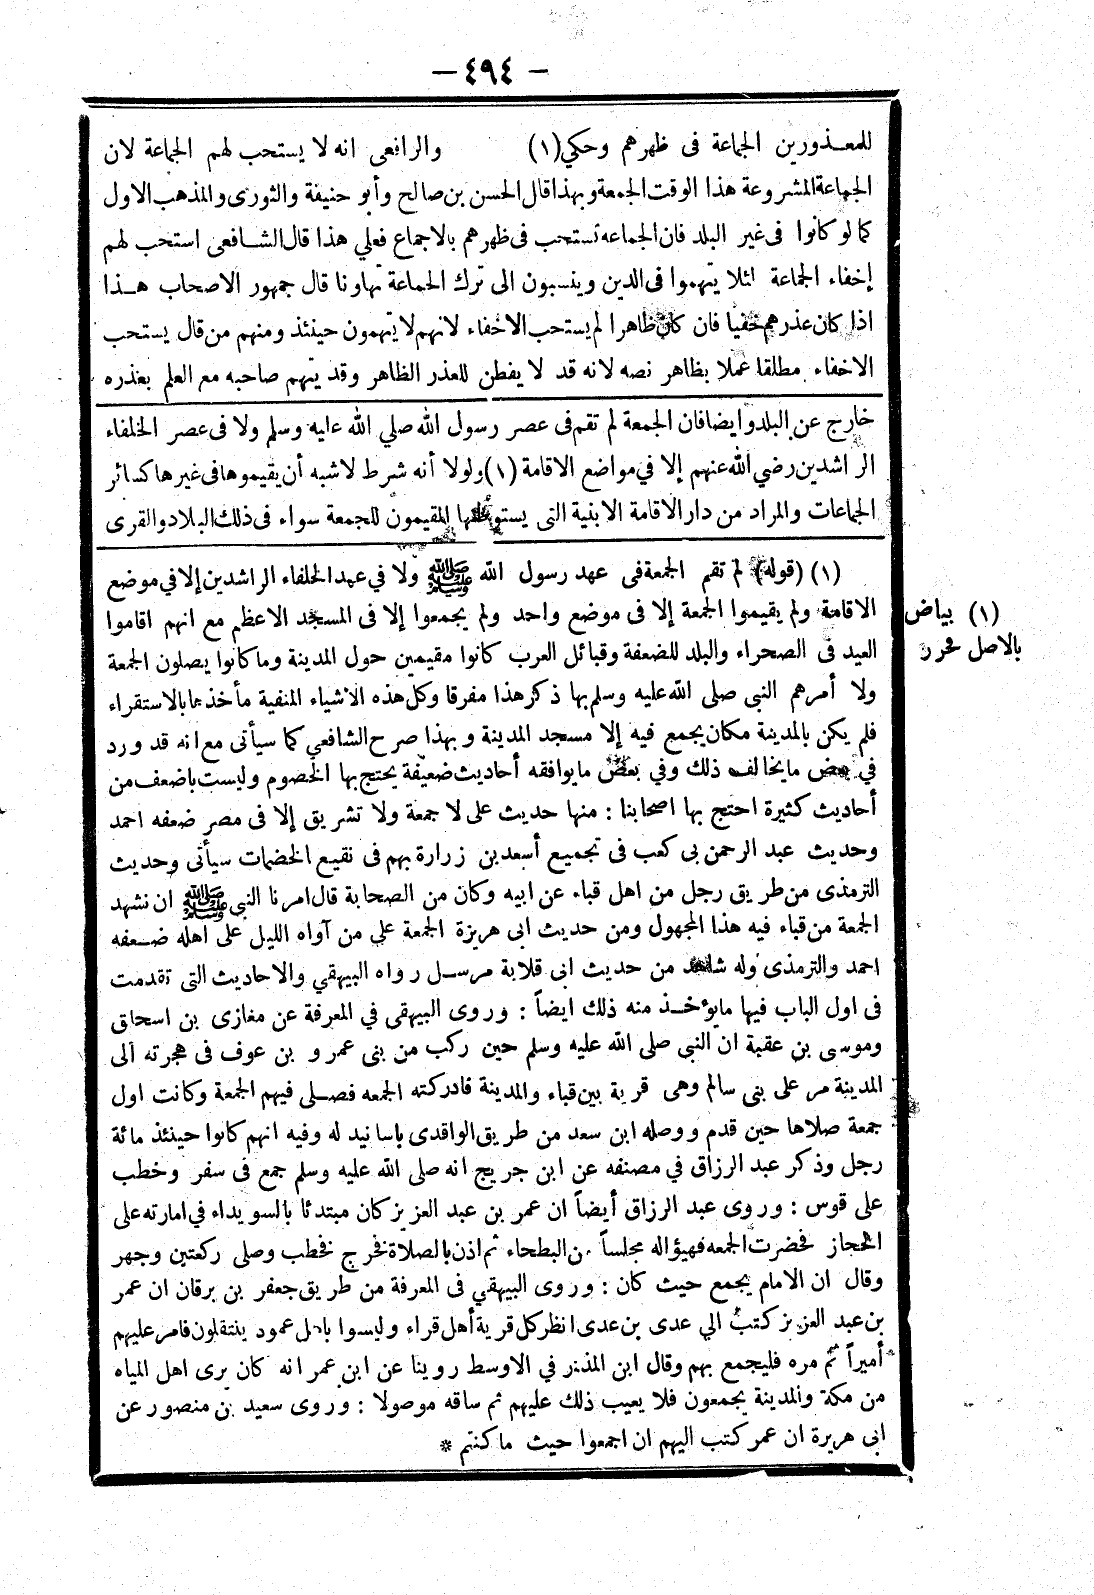 — ٤٩٤ —
للمعـذورين الجماعة فى ظهرهم وحكي (١) والرافعى انه لا يستحب لهم الجماعة لان
الجماعة المشروعة هذا الوقت الجمعة وبهذا قال الحسن بن صالح وأبو حنيفة والثورى والمذهب الاول
كما لو كانوا فى غير البلد فان الجماعه تستحب فى ظهرهم بالاجماع فعلي هذا قال الشافعى استحب لهم
إخفاء الجماعة لئلا يتهموا فى الدين وينسبون الى ترك الجماعة تهاونا قال جمهور الاصحاب هـذا
اذا كان عذرهم خفيا فان كان ظاهرا لم يستحب الاخفاء لانهم لا يتهمون حينئذ ومنهم من قال يستحب
الاخفاء مطلقا عملا بظاهر نصه لانه قد لا يفطن للعذر الظاهر وقد يتهم صاحبه مع العلم بعذره
خارج عن البلد وايضا فان الجمعة لم تقم فى عصر رسول الله صلي الله عليه وسلم ولا فى عصر الخلفاء
الراشدين رضي الله عنهم إلا في مواضع الاقامة (١) ولولا أنه شرط لاشبه أن يقيموها فى غيرها كسائر
الجماعات والمراد من دار الاقامة الابنية التى يستوطنها المقيمون للجمعة سواء فى ذلك البلاد والقرى
(١) (قوله) لم تقم الجمعة فى عهد رسول الله ﷺ ولا في عهد الخلفاء الراشدين إلا في موضع
الاقامة ولم يقيموا الجمعة إلا فى موضع واحد ولم يجمعوا إلا فى المسجد الاعظم مع انهم اقاموا
العيد فى الصحراء والبلد للضعفة وقبائل العرب كانوا مقيمين حول المدينة وما كانوا يصلون الجمعة
ولا أمرهم النبي صلى الله عليه وسلم بها ذكر هذا مفرقا وكل هذه الاشياء المنفية مأخذها بالاستقراء
فلم يكن بالمدينة مكان يجمع فيه إلا مسجد المدينة وبهذا صرح الشافعي كما سيأتى مع انه قد ورد
في بعض ما يخالف ذلك وفي بعض ما يوافقه أحاديث ضعيفة يحتج بها الخصوم وليست باضعف من
أحاديث كثيرة احتج بها اصحابنا : منها حديث على لا جمعة ولا تشريق إلا فى مصر ضعفه احمد
وحديث عبد الرحمن بى كعب فى تجميع أسعد بن زرارة بهم فى نقيع الخضمات سيأتى وحديث
الترمذى من طريق رجل من اهل قباء عن ابيه وكان من الصحابة قال امرنا النبي ﷺ ان نشهد
الجمعة من قباء فيه هذا المجهول ومن حديث ابى هريزة الجمعة علي من آواه الليل على اهله ضـعفه
احمد والترمذى وله شاهد من حديث ابى قلابة مرسـل رواه البيهقي والاحاديث التى تقدمت
فى اول الباب فيها ما يؤخـذ منه ذلك ايضاً : وروى البيهقى في المعرفة عن مغازى بن اسحاق
وموسى بن عقبة ان النبي صلى الله عليه وسلم حين ركب من بنى عمرو بن عوف فى هجرته الى
المدينة مر على بنى سالم وهى قرية بين قباء والمدينة فادركته الجمعه فصـلى فيهم الجمعة وكانت اول
جمعة صلاها حين قدم ووصله ابن سعد من طريق الواقدى باسانيد له وفيه انهم كانوا حينئذ مائة
رجل وذكر عبد الرزاق في مصنفه عن ابن جريج انه صلى الله عليه وسلم جمع فى سفر وخطب
على قوس : وروى عبد الرزاق أيضاً ان عمر بن عبد العزيز كان مبتدئا بالسويداء في امارته على
الحجاز فحضرت الجمعه فهيؤاله مجلساً من البطحاء ثم اذن بالصلاة فخرج فخطب وصلى ركعتين وجهر
وقال ان الامام يجمع حيث كان : وروى البيهقي فى المعرفة من طريق جعفر بن برقان ان عمر
بن عبد العزيز كتب الي عدى بن عدى انظر كل قرية أهل قراء وليسوا باهل عمود ينتقلون فامر عليهم
أميراً ثم مره فليجمع بهم وقال ابن المنذر في الاوسط روينا عن ابن عمر انه كان يرى اهل المياه
من مكة والمدينة يجمعون فلا يعيب ذلك عليهم ثم ساقه موصولا : وروى سعيد بن منصور عن
ابى هريرة ان عمر كتب اليهم ان اجمعوا حيث ما كنتم *
(١) بياض
بالاصل فحرر